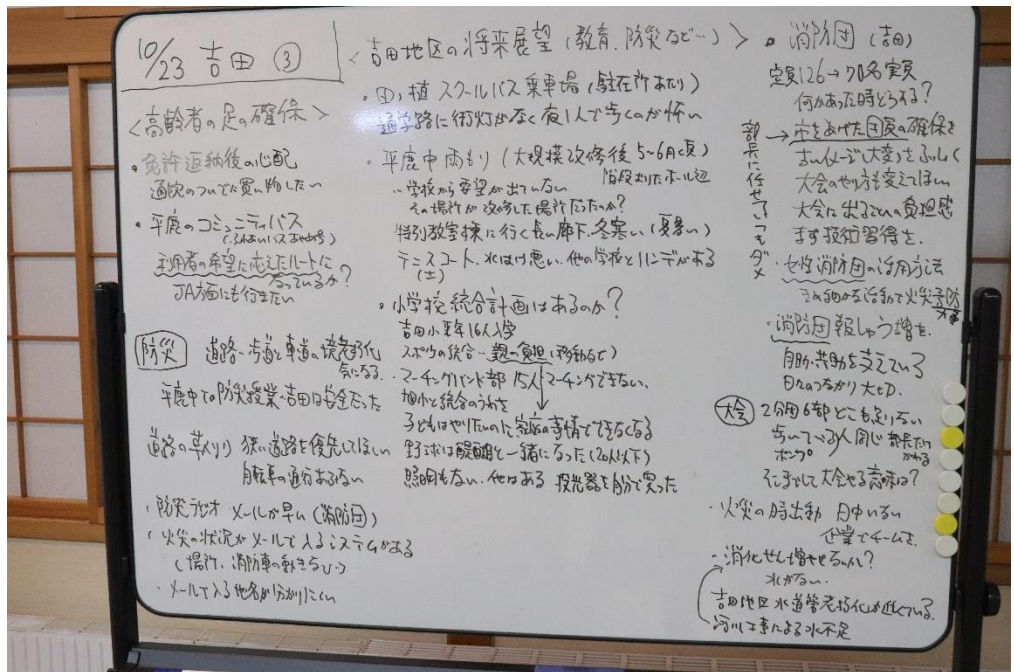 10/23 吉田 ③
<高齢者の足の確保>
・免許返納後の心配
通院のついでに買い物したい
・平鹿のコミュニティバス
(ふれあいバスあやめ号)
利用者の希望に応えたルートに
なっているか？
JA方面にも行きたい
防災 道路・歩道と車道の境老朽化
気になる
平鹿中での防災授業・吉田は安全だった
道路の草刈り 狭い道路を優先してほしい
自転車の通行あぶない
・防災ラジオ メールが早い(消防団)
・火災の状況がメールで入るシステムがある
(場所、消防車の動きもひつ)
・メールで入る地名が分かりにくい
<吉田地区の将来展望(教育、防災など…)>
・田ノ植 スクールバス乗車場(駐在所あたり)
通学路に街灯がなく夜1人で歩くのが怖い
・平鹿中雨もり(大規模改修後5〜6月頃)
階段おりたホール辺
学校から要望が出ていない
その場所が改修した場所だったのか？
特別教室棟に行く長い廊下、冬寒い(夏暑い)
テニスコート、水はけ悪い、他の学校とハンデがある
(土)
・小学校統合計画はあるのか？
吉田小来年16人入学
スポ少の統合…親の負担(移動など)
・マーチングバンド部 15人 マーチングできない、
旭小と統合のうわさ
子どもはやりたいのに家庭の事情でできなくなる
野球は醍醐と一緒になった(20人以下)
照明もない、他はある 投光器を自分で買った
・消防団(吉田)
定員126→70名実員
何かあった時どうする？
部長に任せてもダメ
→市をあげた団員の確保を
まいイメージ(大変)をふっしょく
大会のやり方も変えてほしい
大会に出ることへの負担感
まず技術習得を、
・女性消防団の活用方法
きめ細かな活動で火災予防
・消防団報しゅう増を、
自助・共助を支えている
日々のつながり大切
大会 2分団6部どこも足りない
歩いている人同じ 部長だけ
かわる
ポンプ
そこまでして大会やる意味は？
・火災の時出動 日中いない
企業でチームを、
・消火せん増やせるのか？
水がない、
吉田地区水道管老朽化が進んでいる、
河川工事による水不足